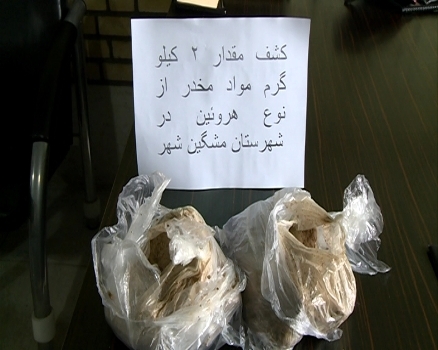 کشف مقدار ۲ کیلو
گرم مواد مخدر از
نوع هروئین در
شهرستان مشگین شهر